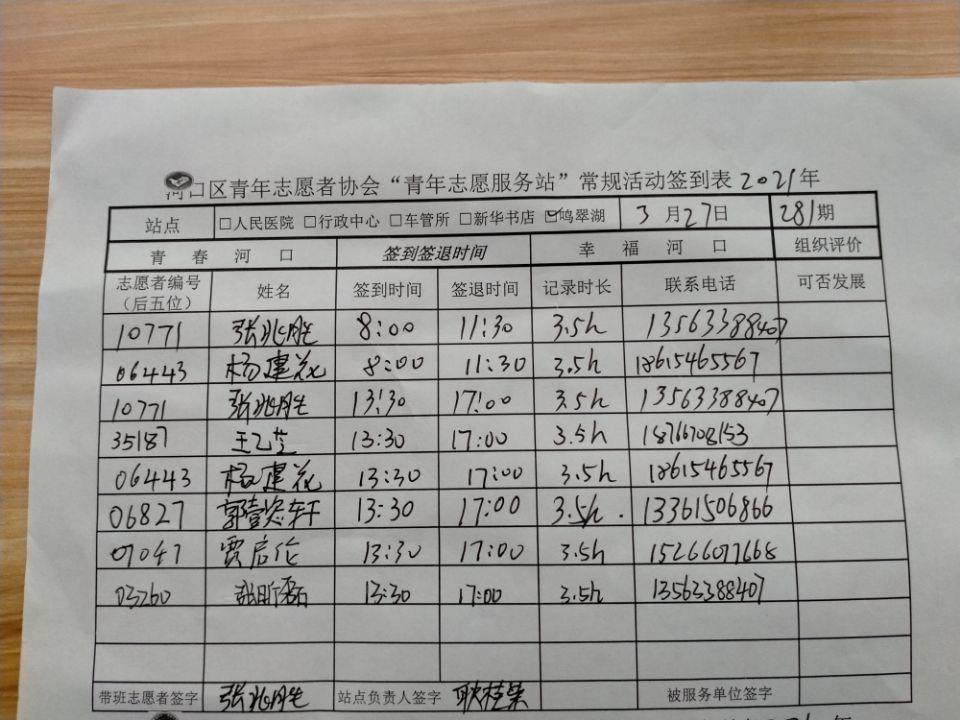 河口区青年志愿者协会“青年志愿服务站”常规活动签到表 2021年
站点 □人民医院 □行政中心 □车管所 □新华书店 ☑鸣翠湖 3月27日 281期
青春河口 签到签退时间 幸福河口 组织评价
志愿者编号（后五位） 姓名 签到时间 签退时间 记录时长 联系电话 可否发展
10771 张兆胜 8:00 11:30 3.5h 13563388407
06443 杨建花 8:00 11:30 3.5h 18615465567
10771 张兆胜 13:30 17:00 3.5h 13563388407
35187 王乙芝 13:30 17:00 3.5h 18766708153
06443 杨建花 13:30 17:00 3.5h 18615465567
06827 郭壹岩轩 13:30 17:00 3.5h. 13361506866
07047 贾启伦 13:30 17:00 3.5h 15266077668
03260 张昕磊 13:30 17:00 3.5h 13563388407
带班志愿者签字 张兆胜 站点负责人签字 耿桂集 被服务单位签字